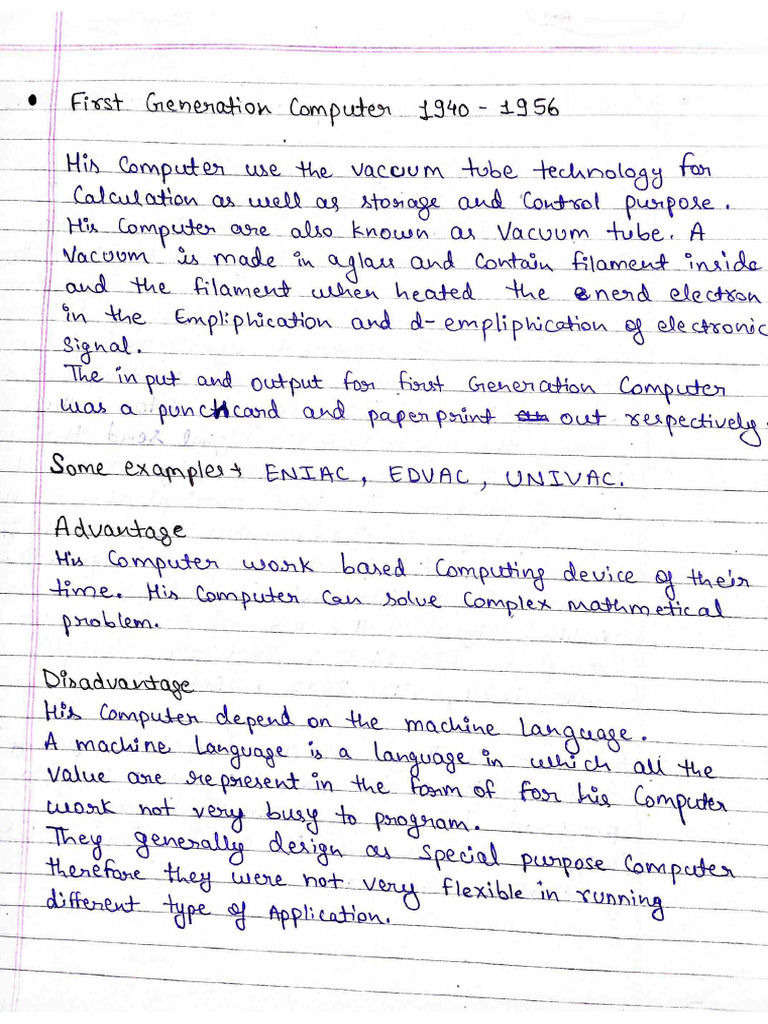 • First Generation Computer 1940 - 1956
His Computer use the vacuum tube technology for
Calculation as well as storage and Control purpose.
His Computer are also known as Vacuum tube. A
Vacuum is made in a glass and Contain filament inside
and the filament when heated the enerd electron
in the Empliphication and d-empliphication of electronic
Signal.
The input and output for first Generation Computer
was a punchcard and paperprint out respectively.
Some examples→ ENIAC, EDVAC, UNIVAC.
Advantage
His Computer work based Computing device of their
time. His Computer Can solve Complex mathmetical
problem.
Disadvantage
His Computer depend on the machine language.
A machine language is a language in which all the
value are represent in the form of for his Computer
work not very busy to program.
They generally design as special purpose Computer
therefore they were not very flexible in running
different type of Application.